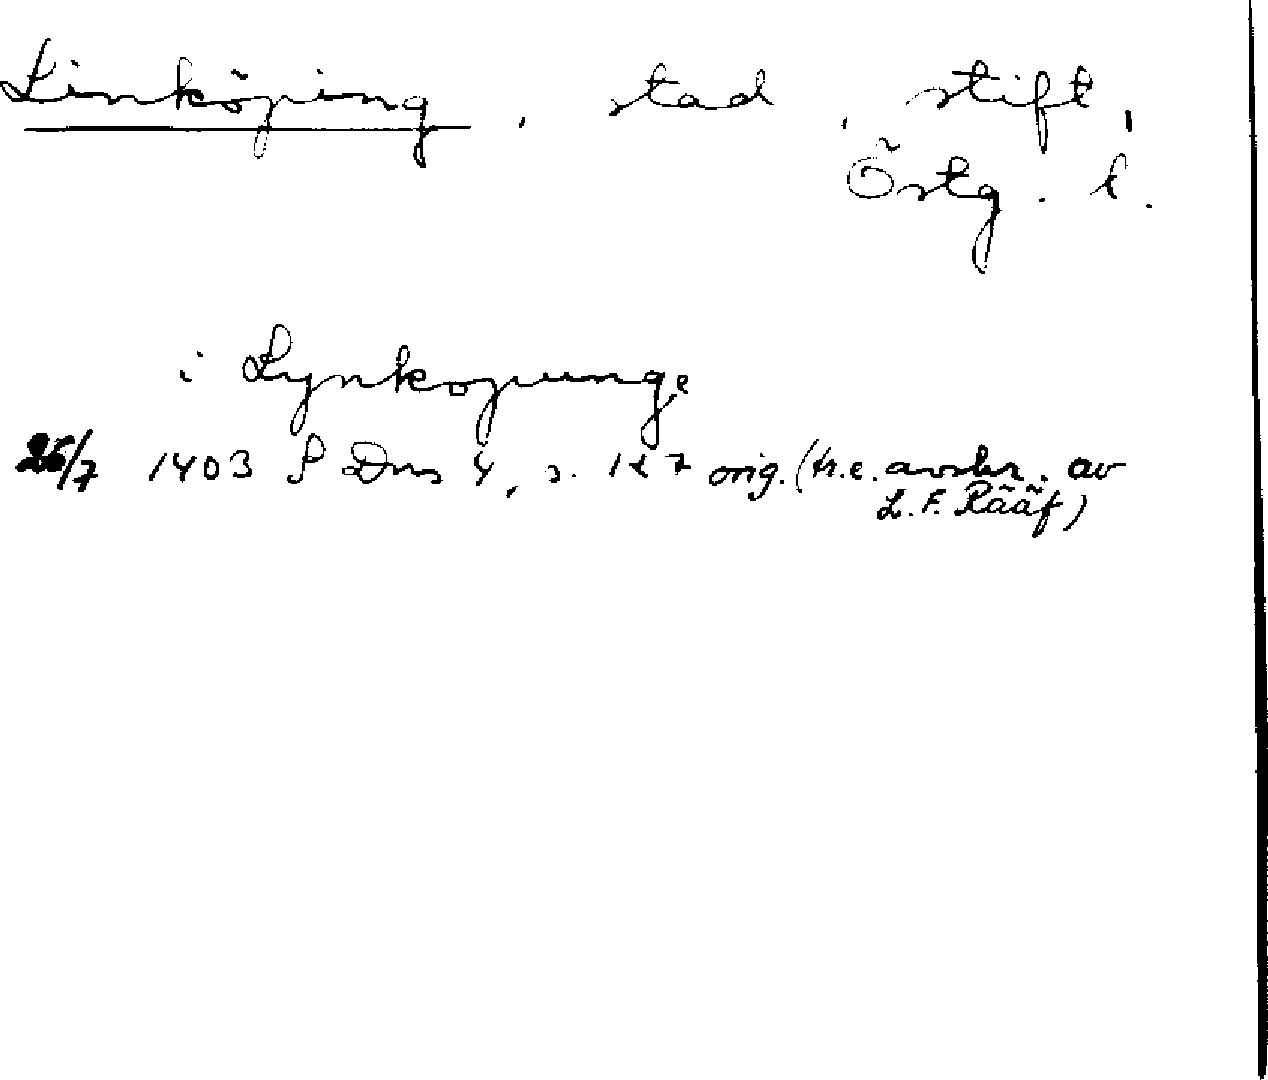 Linköping, stad, stift,
Östg. l.
i Lynkopunge
26/7 1403 S Dns 4, s. 127 orig. (tr.e. avskr. av
L. F. Rääf)